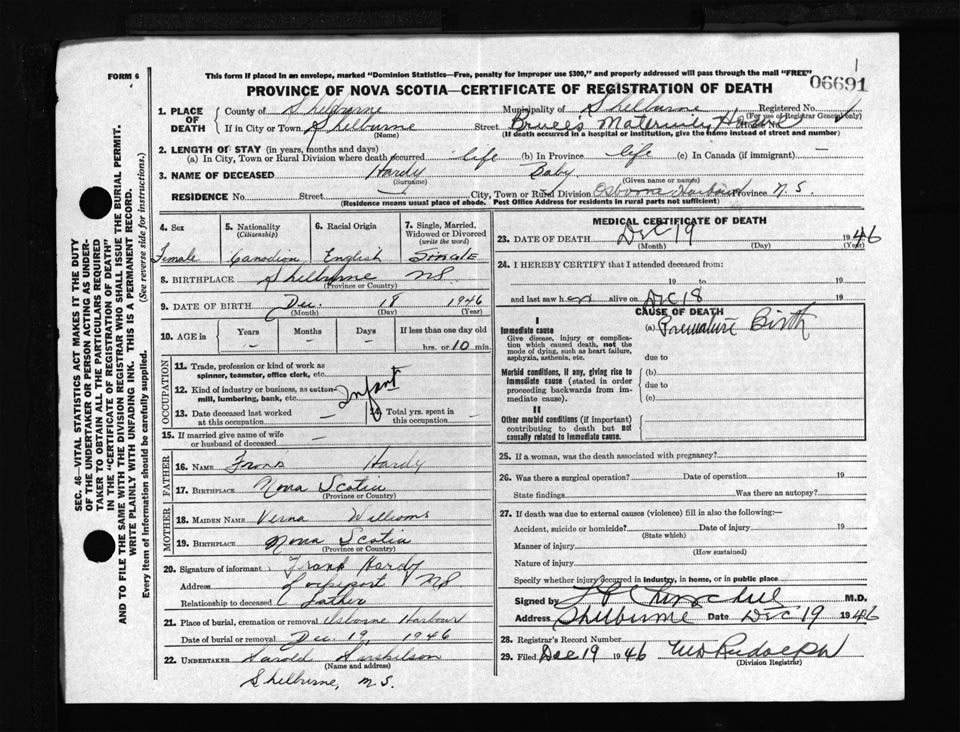 FORM 6
This form if placed in an envelope, marked "Dominion Statistics—Free, penalty for improper use $300," and properly addressed will pass through the mail "FREE"
1
06691
PROVINCE OF NOVA SCOTIA—CERTIFICATE OF REGISTRATION OF DEATH
1. PLACE OF DEATH
County of Shelburne Municipality of Shelburne Registered No.
(For use of Registrar General only)
If in City or Town Shelburne Street Bruce's Maternity Home
(Name) (If death occurred in a hospital or institution, give the name instead of street and number)
2. LENGTH OF STAY (in years, months and days)
(a) In City, Town or Rural Division where death occurred life (b) In Province life (c) In Canada (if immigrant) —
3. NAME OF DECEASED Hardy Baby
(Surname) (Given name or names)
RESIDENCE No. Street City, Town or Rural Division Osborne Harbour Province N.S.
(Residence means usual place of abode. Post Office Address for residents in rural parts not sufficient)
4. Sex
Female
5. Nationality (Citizenship)
Canadian
6. Racial Origin
English
7. Single, Married, Widowed or Divorced (write the word)
Single
8. BIRTHPLACE Shelburne NS
(Province or Country)
9. DATE OF BIRTH Dec. 18 1946
(Month) (Day) (Year)
10. AGE in Years Months Days If less than one day old
— — — hrs. or 10 min.
OCCUPATION
11. Trade, profession or kind of work as spinner, teamster, office clerk, etc.
12. Kind of industry or business, as cotton-mill, lumbering, bank, etc.
Infant
13. Date deceased last worked at this occupation —
14. Total yrs. spent in this occupation —
15. If married give name of wife or husband of deceased —
FATHER
16. NAME Hardy
17. BIRTHPLACE Nova Scotia
(Province or Country)
MOTHER
18. MAIDEN NAME Verna Williams
19. BIRTHPLACE Nova Scotia
(Province or Country)
20. Signature of informant Frank Hardy
Address Lockeport NS
Relationship to deceased Father
21. Place of burial, cremation or removal Osborne Harbour
Date of burial or removal Dec. 19, 1946
22. UNDERTAKER Harold
(Name and address)
Shelburne, N.S.
MEDICAL CERTIFICATE OF DEATH
23. DATE OF DEATH Dec 19 1946
(Month) (Day) (Year)
24. I HEREBY CERTIFY that I attended deceased from:
19 to 19
and last saw her alive on Dec 18 19
CAUSE OF DEATH
I
Immediate cause
Give disease, injury or complication which caused death, not the mode of dying, such as heart failure, asphyxia, asthenia, etc.
(a) Premature Birth
due to
Morbid conditions, if any, giving rise to immediate cause (stated in order proceeding backwards from immediate cause).
(b)
due to
(c)
II
Other morbid conditions (if important) contributing to death but not causally related to immediate cause.
25. If a woman, was the death associated with pregnancy?
26. Was there a surgical operation? Date of operation 19
State findings Was there an autopsy?
27. If death was due to external causes (violence) fill in also the following:—
Accident, suicide or homicide? Date of injury 19
(State which)
Manner of injury
(How sustained)
Nature of injury
Specify whether injury occurred in industry, in home, or in public place
Signed by L P Churchill M.D.
Address Shelburne Date Dec 19 1946
28. Registrar's Record Number
29. Filed Dec 19 1946 Rudolph
(Division Registrar)
SEC. 46—VITAL STATISTICS ACT MAKES IT THE DUTY
OF THE UNDERTAKER OR PERSON ACTING AS UNDER-
TAKER TO OBTAIN ALL THE PARTICULARS REQUIRED
IN THE "CERTIFICATE OF REGISTRATION OF DEATH"
AND TO FILE THE SAME WITH THE DIVISION REGISTRAR WHO SHALL ISSUE THE BURIAL PERMIT.
WRITE PLAINLY WITH UNFADING INK. THIS IS A PERMANENT RECORD.
Every item of information should be carefully supplied. (See reverse side for instructions.)